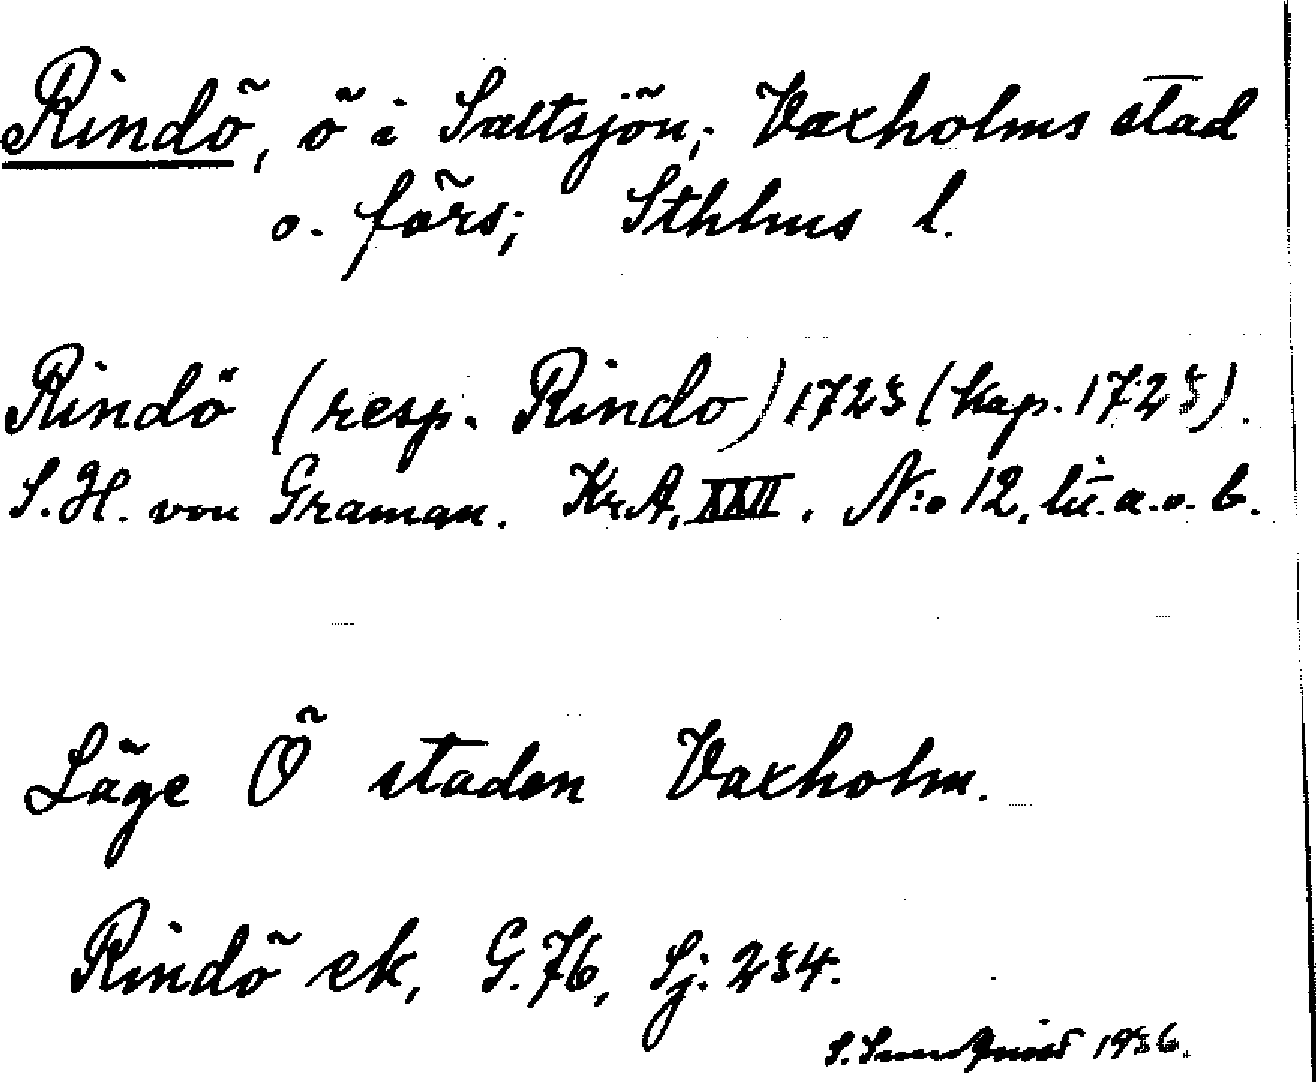 Rindö, ö i Saltsjön; Vaxholms stad
o. förs; Sthlms l.
Rindö (resp. Rindo) 1725 (kap. 1725).
S.H. von Graman. Kr.A. XXII. N:o 12, lit. a. o. b.
Läge Ö staden Vaxholm.
Rindö ek, G.76, Sj: 254.
S. 1936.